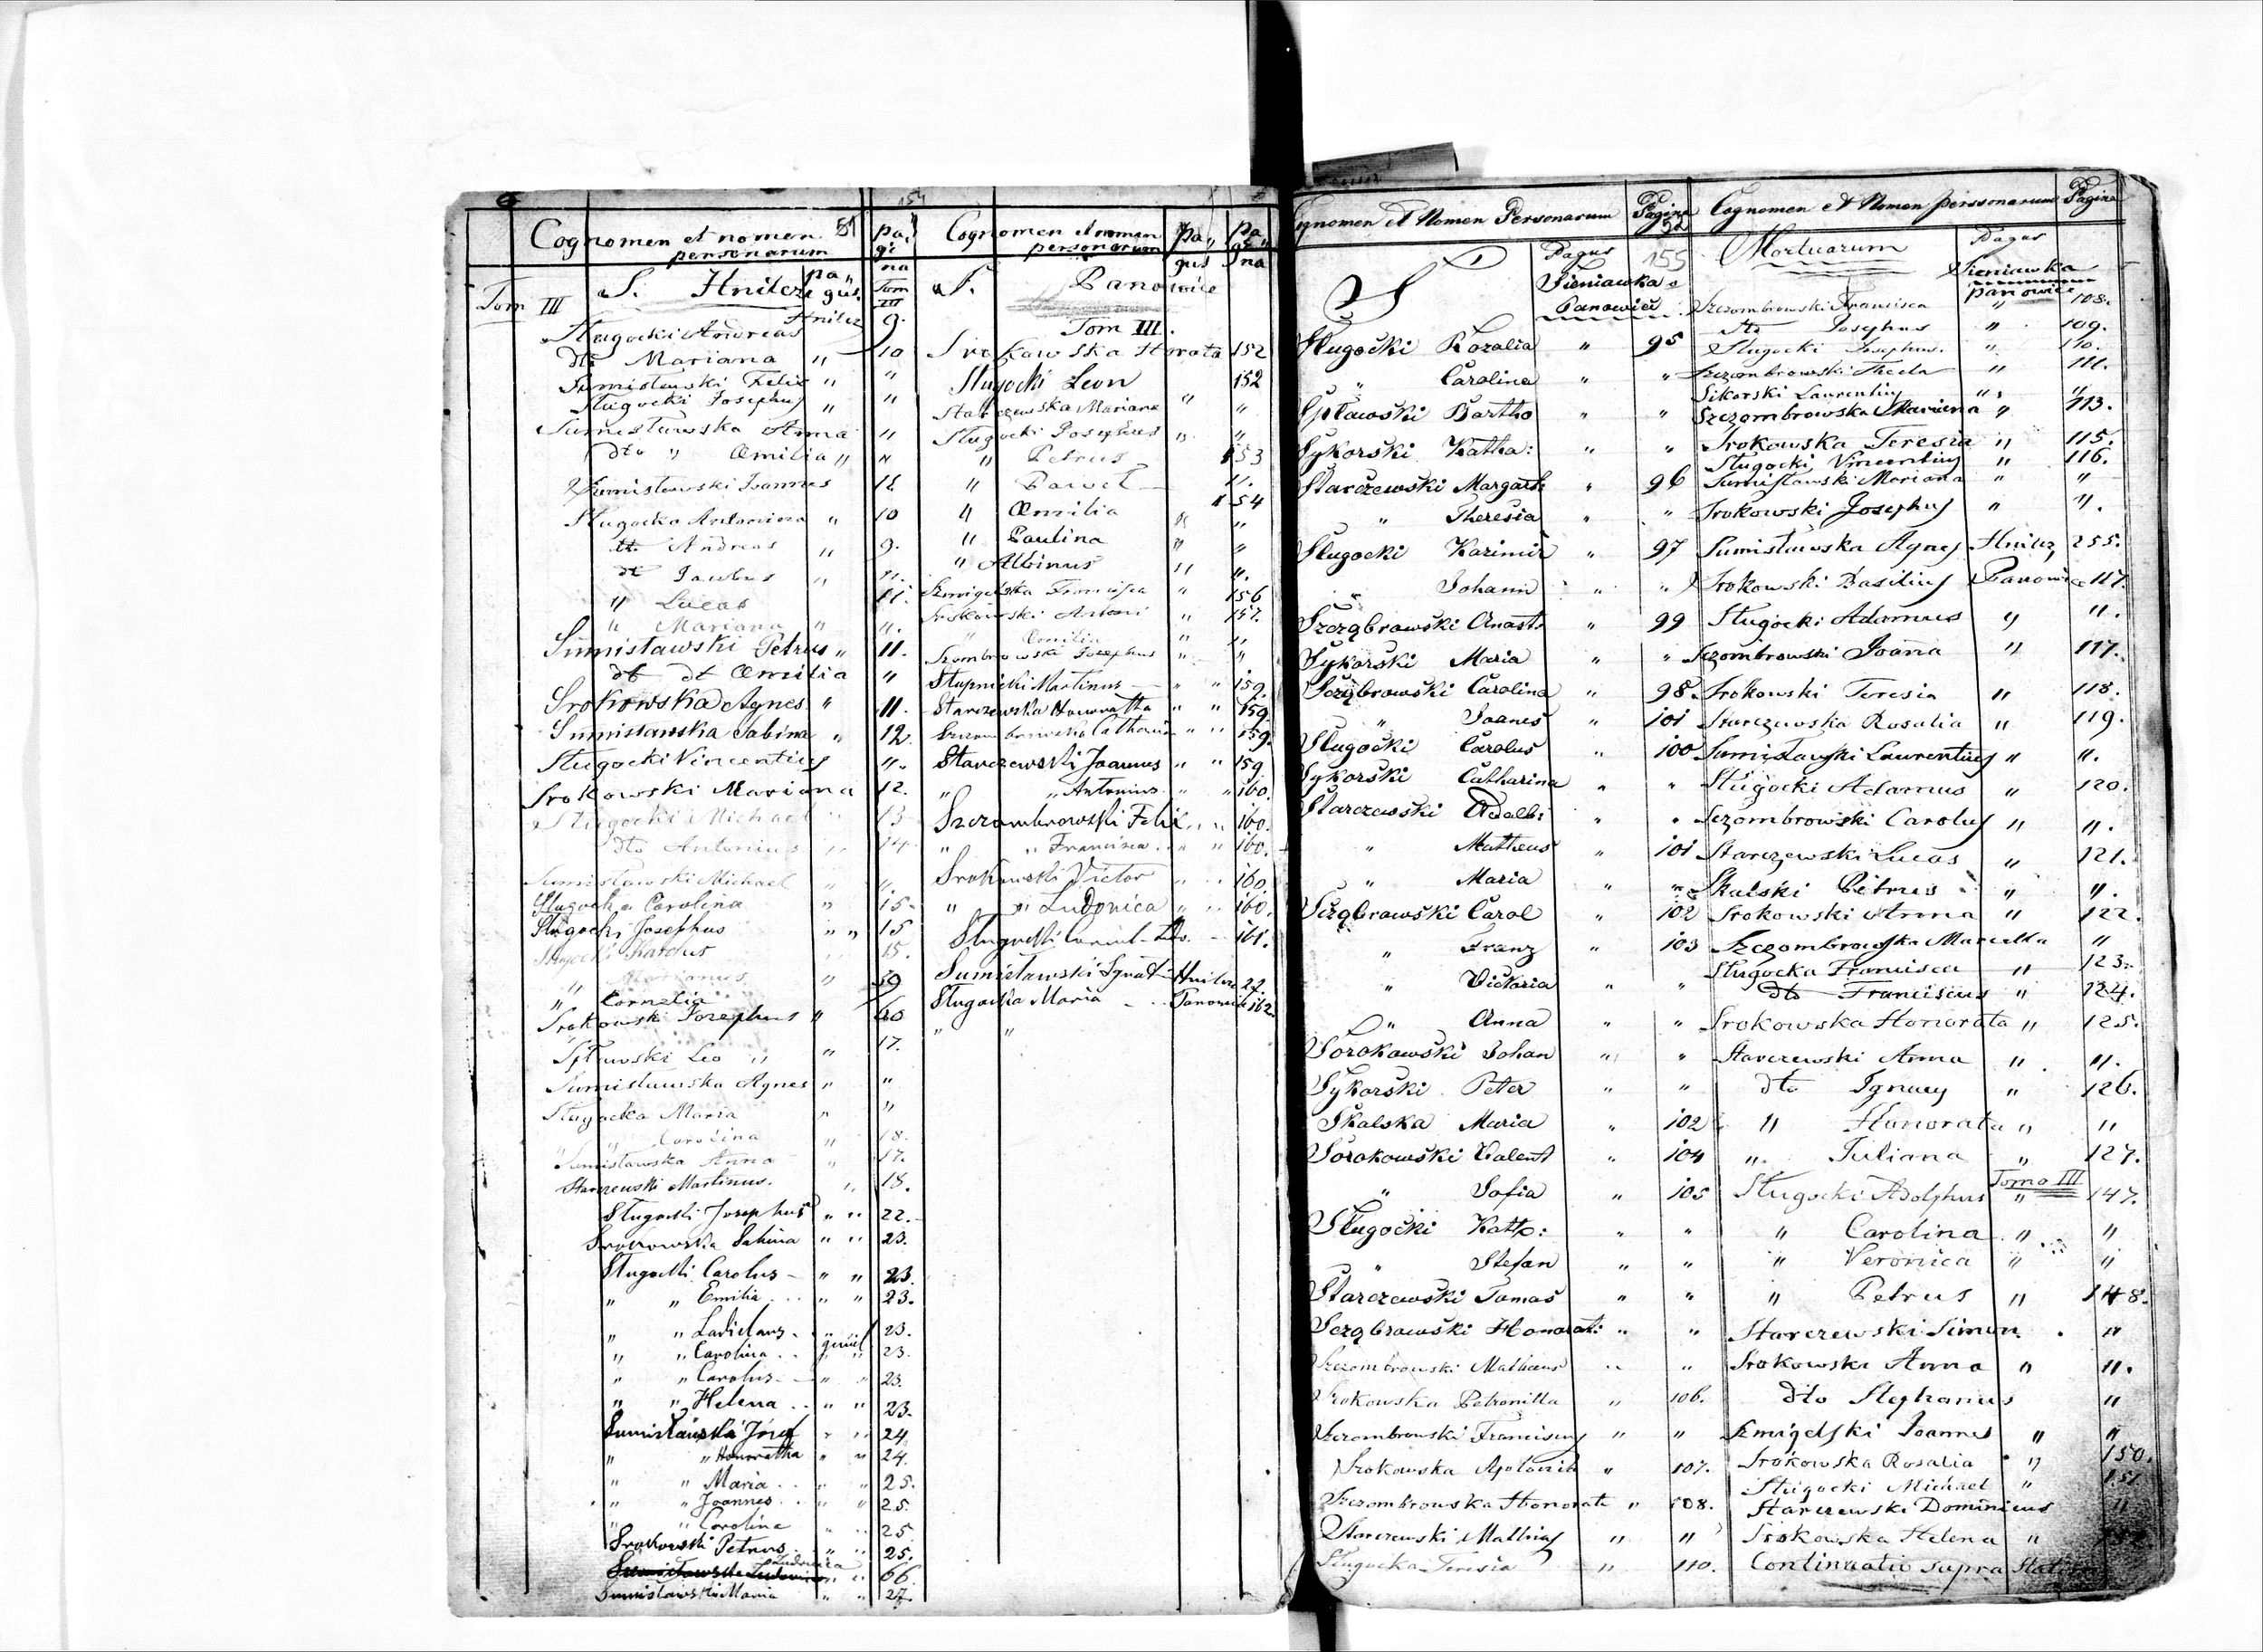 154
Cognomen et nomen personarum
51
pa,, gi na
S. Hnilcze
pa,, gus.
Tom III
Tom III
Sługocki Andreas Hnilcz 9.
dto Mariana " 10
Sumisławski Felix " "
Sługocki Josephus " "
Sumisławska Anna "
dto " Emilia " "
Sumisławski Joannes 12
Sługocka Antonina " 10
dt. Andreas " 9.
dt Jacobus " ".
" Lucas 11.
" Mariana " ".
Sumisławski Petrus " 11.
dt dt Emilia "
Srokowska Agnes " 11.
Sumisławska Sabina " 12
Sługocki Vincentius ".
Srokowski Mariana 12.
Sługocki Michael 13
dto Antonius 14
Sumisławski Michael " ".
Sługocka Carolina " 15.
Sługocki Josephus " " 15
Sługocki Karolus 15.
" Marianus " 59
" Cornelia
Srokowski Josephus " 60
Spławski Leo " " 17.
Sumisławska Agnes " "
Sługocka Maria " "
" " Carolina " 18.
Sumisławska Anna " 17.
Starczewski Martinus. " 18.
Sługocki Josephus " " 22.
Srokowska Sabina " " 23.
Sługocki Carolus " " 23.
" " Emilia " " 23.
" " Ladislaus 23.
" " Carolina gemel 23.
" " Carolus 23.
" " Helena " " 23.
Sumisławski Józef " " 24
" " Honoratha " " 24.
" " Maria " " 25.
" " Joannes " " 25.
" " Carolina " 25
Srokowski Petrus " " 25.
Ludovica " 66
Sumisławski Maria " " 27.
Cognomen et nomen personarum
pa,, gus
pa gi,, na
S. Panowice
Tom III.
Srokowska Horata 152
Sługocki Leon 152
Starczewska Mariana " "
Sługocki Josephus " "
" Petrus 153
" Paweł ".
" Emilia 154
" Paulina " "
" Albinus " ".
Szmigelska Francisca " 156
Srokowski Antoni " 157.
" Emilia " "
Szombrowski Josephus " "
Słupnicki Martinus " " 159.
Starczewska Honoratha " " 159.
Catharina " " 159.
Starczewski Joannes " " 159
" " Antonius " " 160.
Szczombrowski Felix " " 160.
" " Francisca " " 160.
Srokowski Victor " " 160.
" " Ludovica " " 160.
Sługocki 161.
Sumisławski Ignat. Hnilcze 22.
Sługocka Maria Panowice 162.
" "
Cognomen et Nomen Personarum
Pagina
S
Pagus Sieniawka Panowice
155
Sługocki Rozalia " 95
" Carolina " "
Spławski Bartho " "
Sykorski Katha: " "
Starczewski Margareth " 96
" Theresia " "
Sługocki Kazimir " 97
" Johann " "
Szcząbrowski Anast: " 99
Sykorski Maria " "
Szcząbrowski Carolina " 98.
" Joanes " 101
Sługocki Carolus " 100
Sykorski Catharina " "
Starczewski Adalb: " "
" Matheus " 101
" Maria " "
Szcząbrowski Carol " 102
" Franz " 103
" Victoria " "
" Anna " "
Sorokowski Johan " "
Sykorski Peter " "
Skalska Maria " 102
Sorokowski Valent " 104
" Sofia " 105
Sługocki Kath: " "
" Stefan " "
Starczewski Tomas " "
Szcząbrowski Honorat: " "
Szczombrowski Matheus " "
Srokowska Petronilla " 106.
Szczombrowski Franciscus " "
Srokowska Apolonia " 107.
Szczombrowska Honorata " 108.
Starczewski Mathias " "
Sługocka Teresia " 110.
Cognomen et Nomen perssonarum
Pagina
Mortuarum
Pagus Sieniawka panowice
Szczombrowski Francisca " 108.
dto Josephus " 109.
Sługocki Josephus. " 110.
Szczombrowski Thecla " 111.
Sikorski Laurentius " "
Szczombrowska Mariana " 113.
Srokowska Teresia " 115.
Sługocki Vincentius " 116.
Sumisławski Mariana " "
Srokowski Josephus " ".
Sumisławska Agnes Hnilcz 255.
Srokowski Basilius Panowice 117.
Sługocki Adamus " ".
Szczombrowski Joana " 117.
Srokowski Teresia " 118.
Starczewska Rosalia " 119.
Sumisławski Laurentius " ".
Sługocki Adamus " 120.
Szczombrowski Carolus " ".
Starczewski Lucas " 121.
Skalski Petrus " ".
Srokowski Anna " 122.
Szczombrowska Marcella "
Sługocka Francisca " 123.
dto Franciscus " 124.
Srokowska Honorata " 125.
Starczewski Anna " ".
dto Ignacy " 126.
" Honorata " "
" Juliana " 127.
Tomo III
Sługocki Adolphus " 147.
" Carolina " "
" Veronica " "
" Petrus " 148.
Starczewski Simon. "
Srokowska Anna " ".
dto Stephanus "
Szmigelski Joannes " "
Srokowska Rosalia " 150.
Sługocki Michael " 151
Starczewski Dominicus "
Srokowska Helena "
Continuatio supra